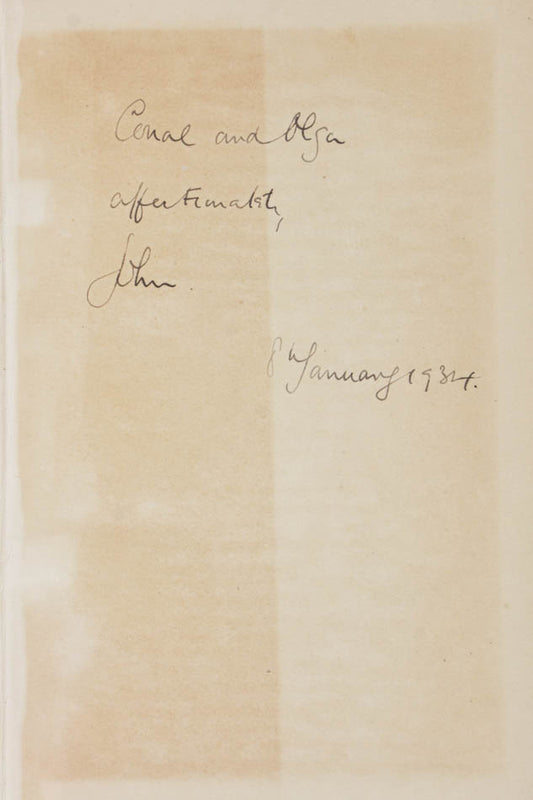 Conal and Olga
affectionately,
John.
8th January 1934.